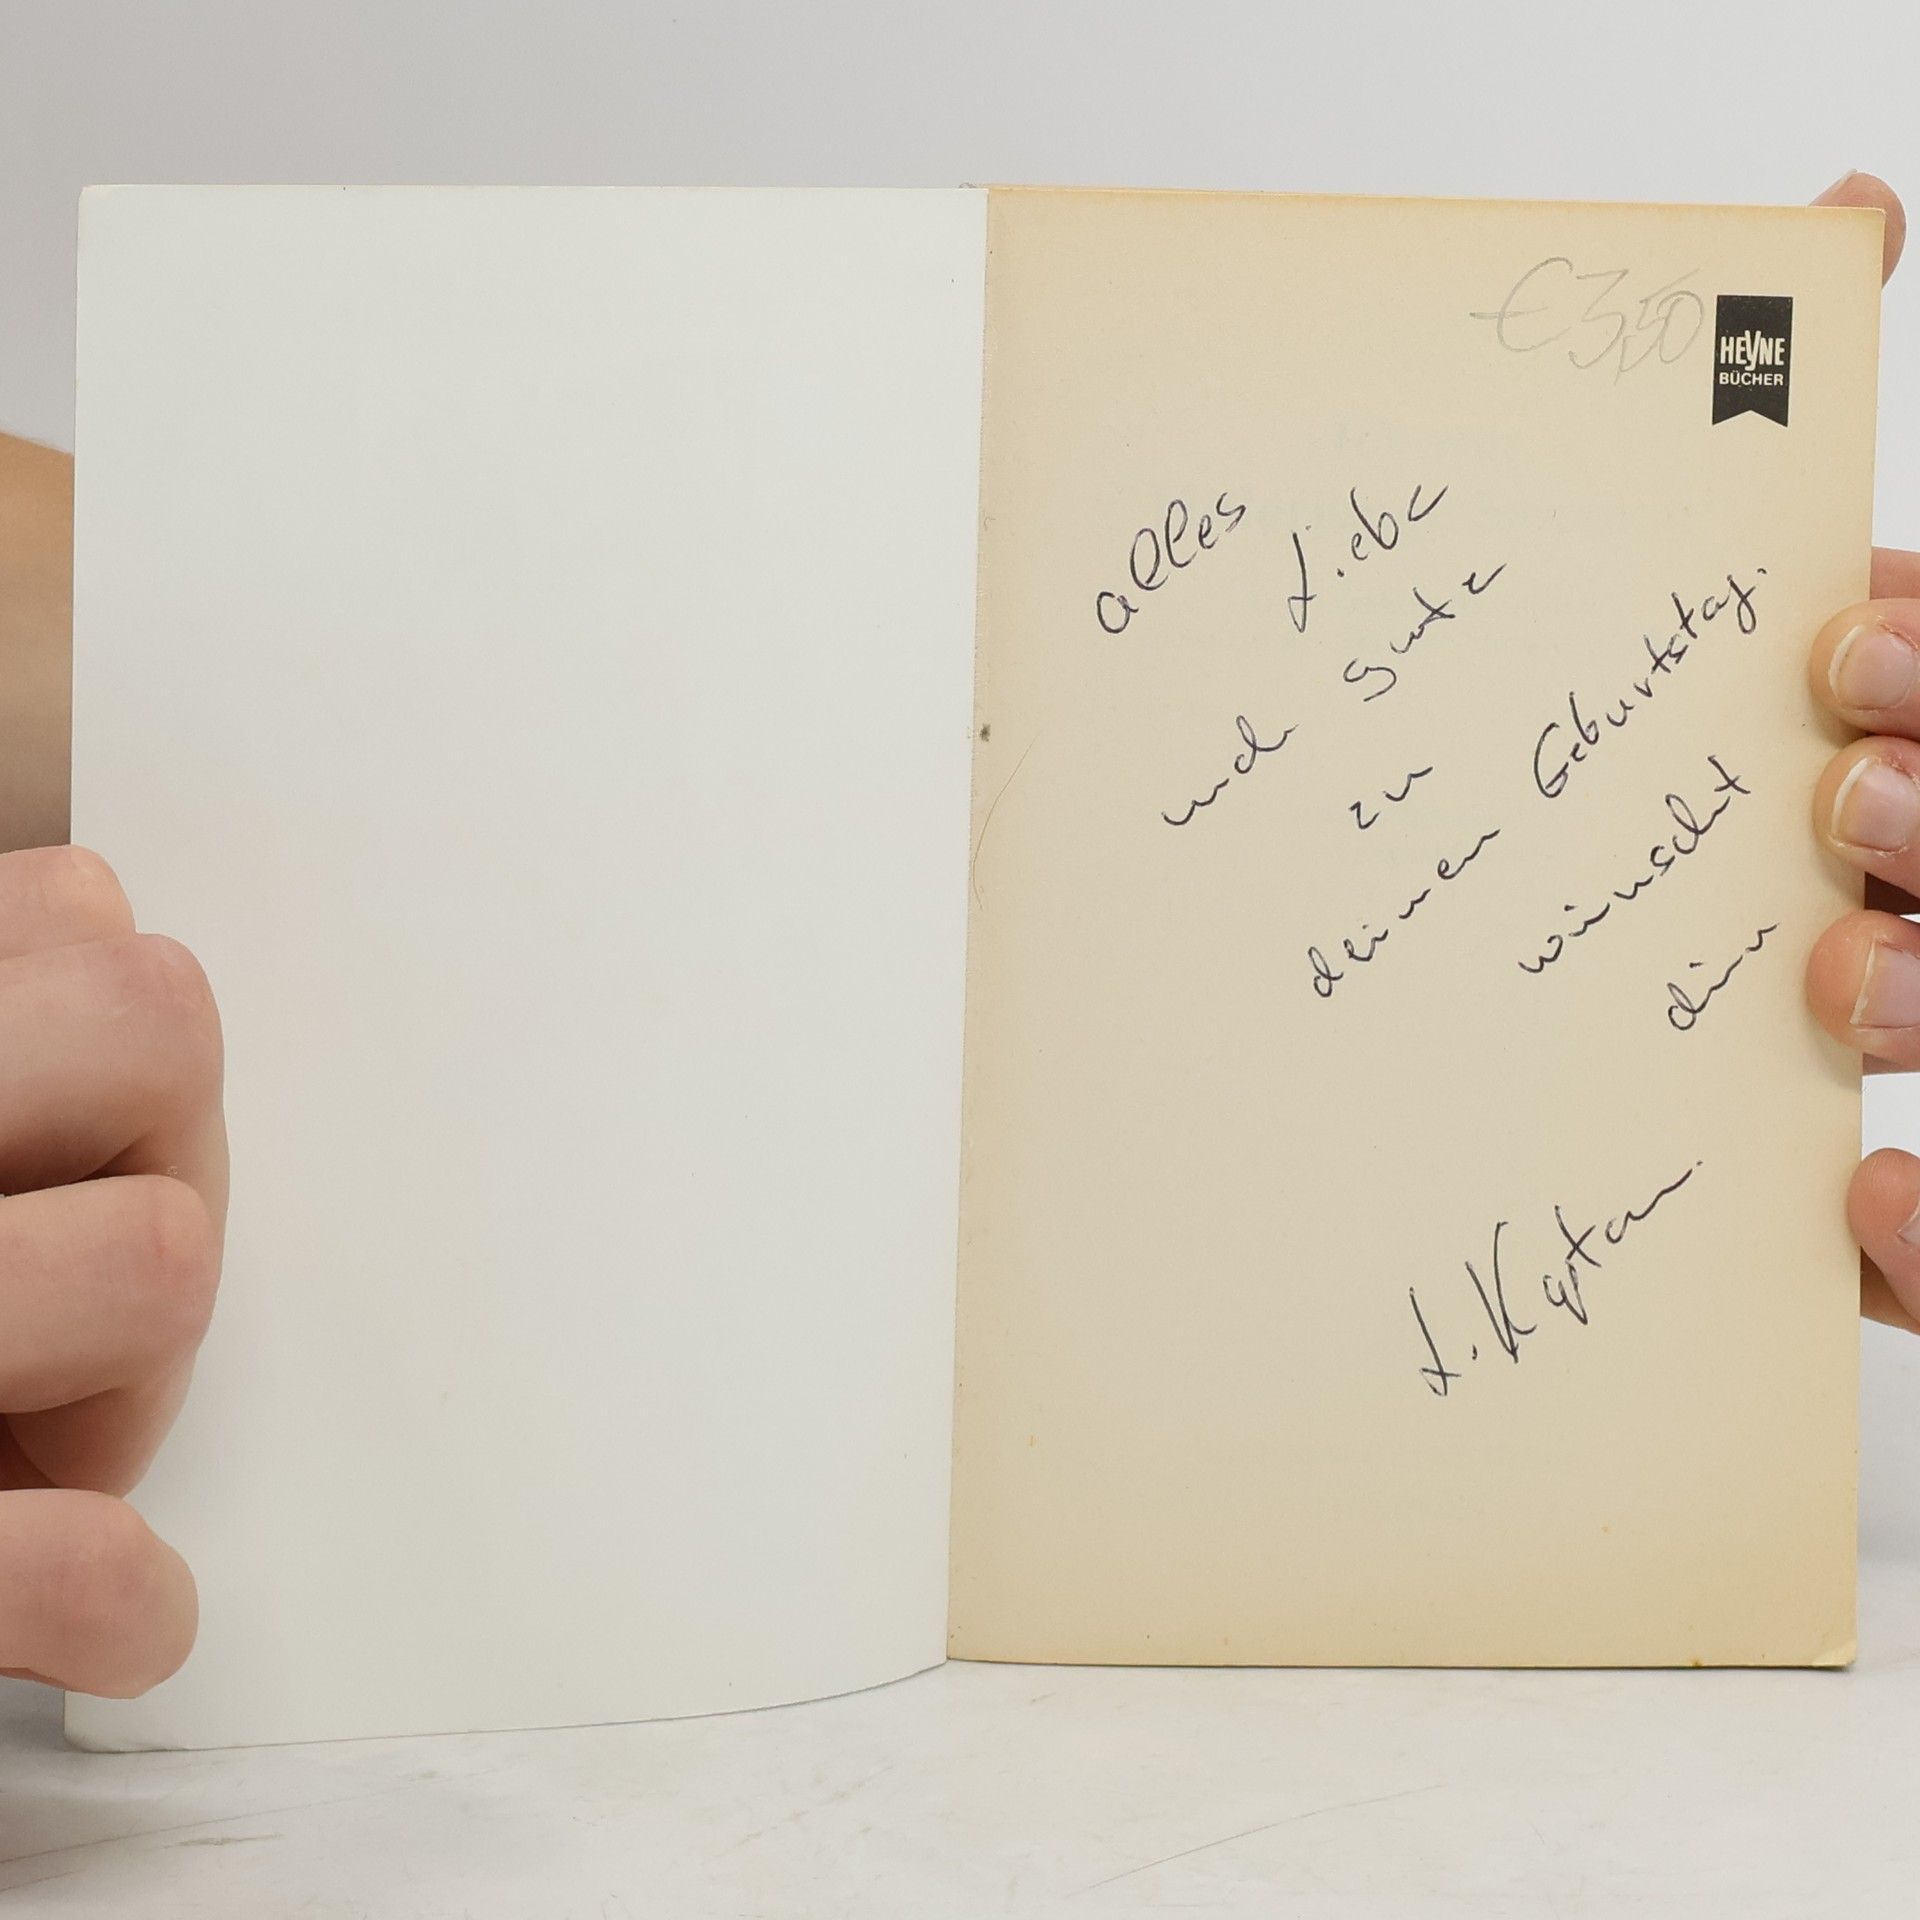 €3,50
HEYNE
BÜCHER
alles Liebe
und gute
zu
deinen Geburtstag.
wünscht
dir
L. Kaptan